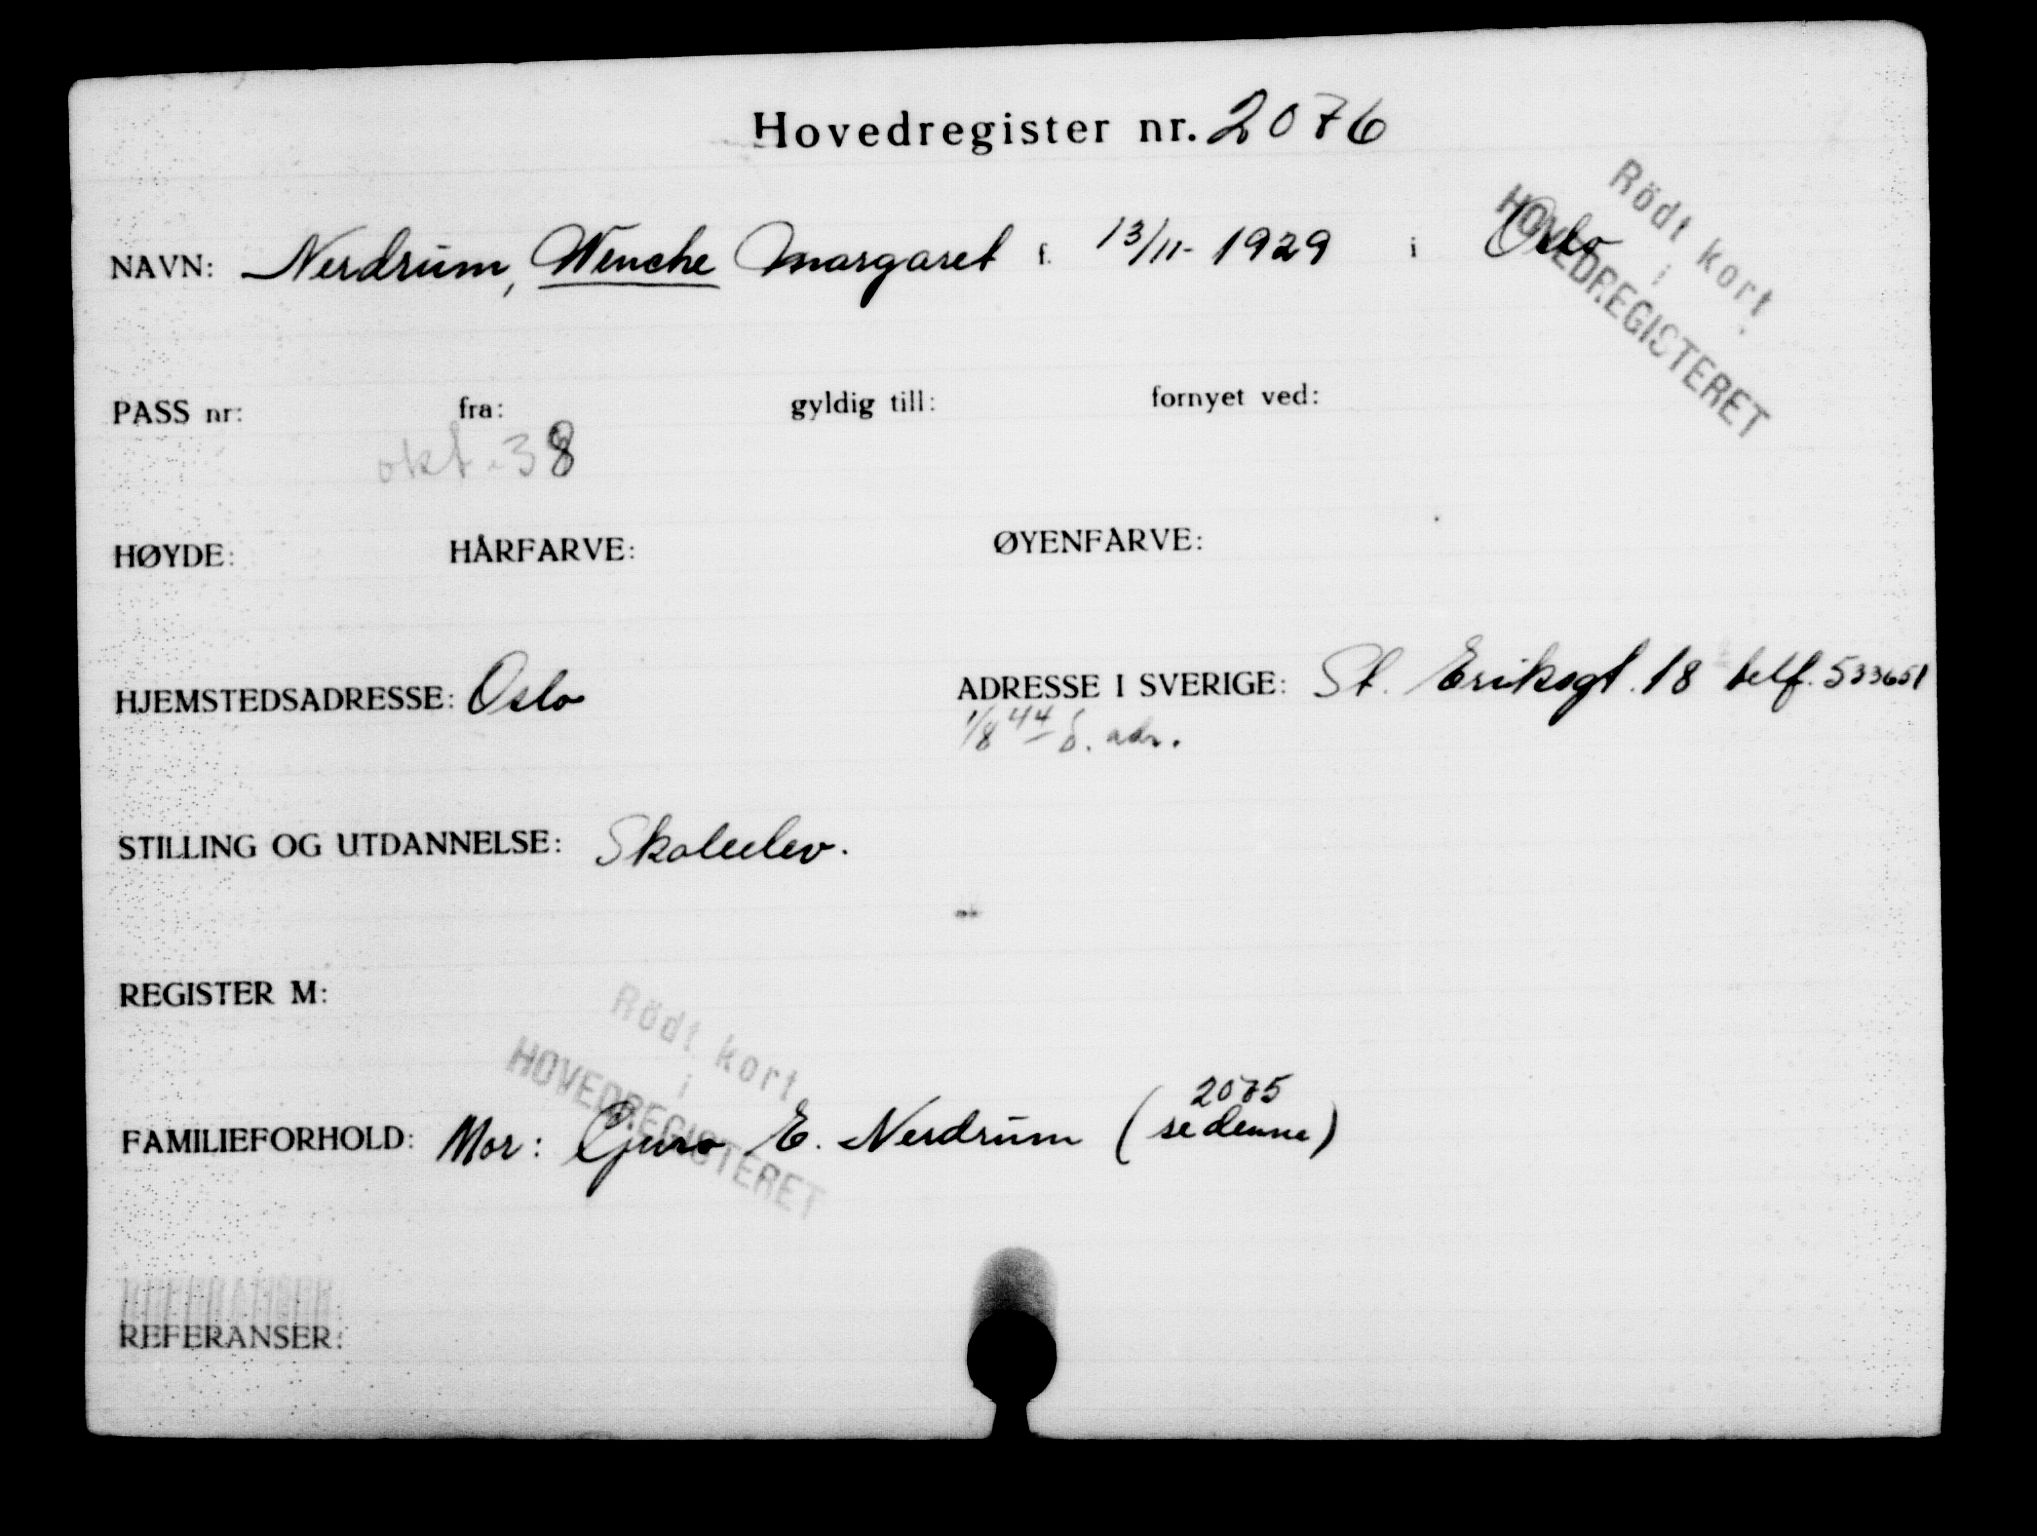 Hovedregister nr. 2076
Rödt kort
i
HOVEDREGISTERET
NAVN: Nerdrum, Wenche Margaret f. 13/11-1929 i Oslo
PASS nr: fra: gyldig till: fornyet ved:
okt. 38
HØYDE: HÅRFARVE: ØYENFARVE:
HJEMSTEDSADRESSE: Oslo ADRESSE I SVERIGE: St. Eriksgt. 18 telf. 533651
1/8 44 S. adr.
STILLING OG UTDANNELSE: Skoleelev.
REGISTER M:
Rödt kort
i
HOVEDREGISTERET
2075
FAMILIEFORHOLD: Mor: Guro E. Nerdrum (se denne)
REFERANSER: